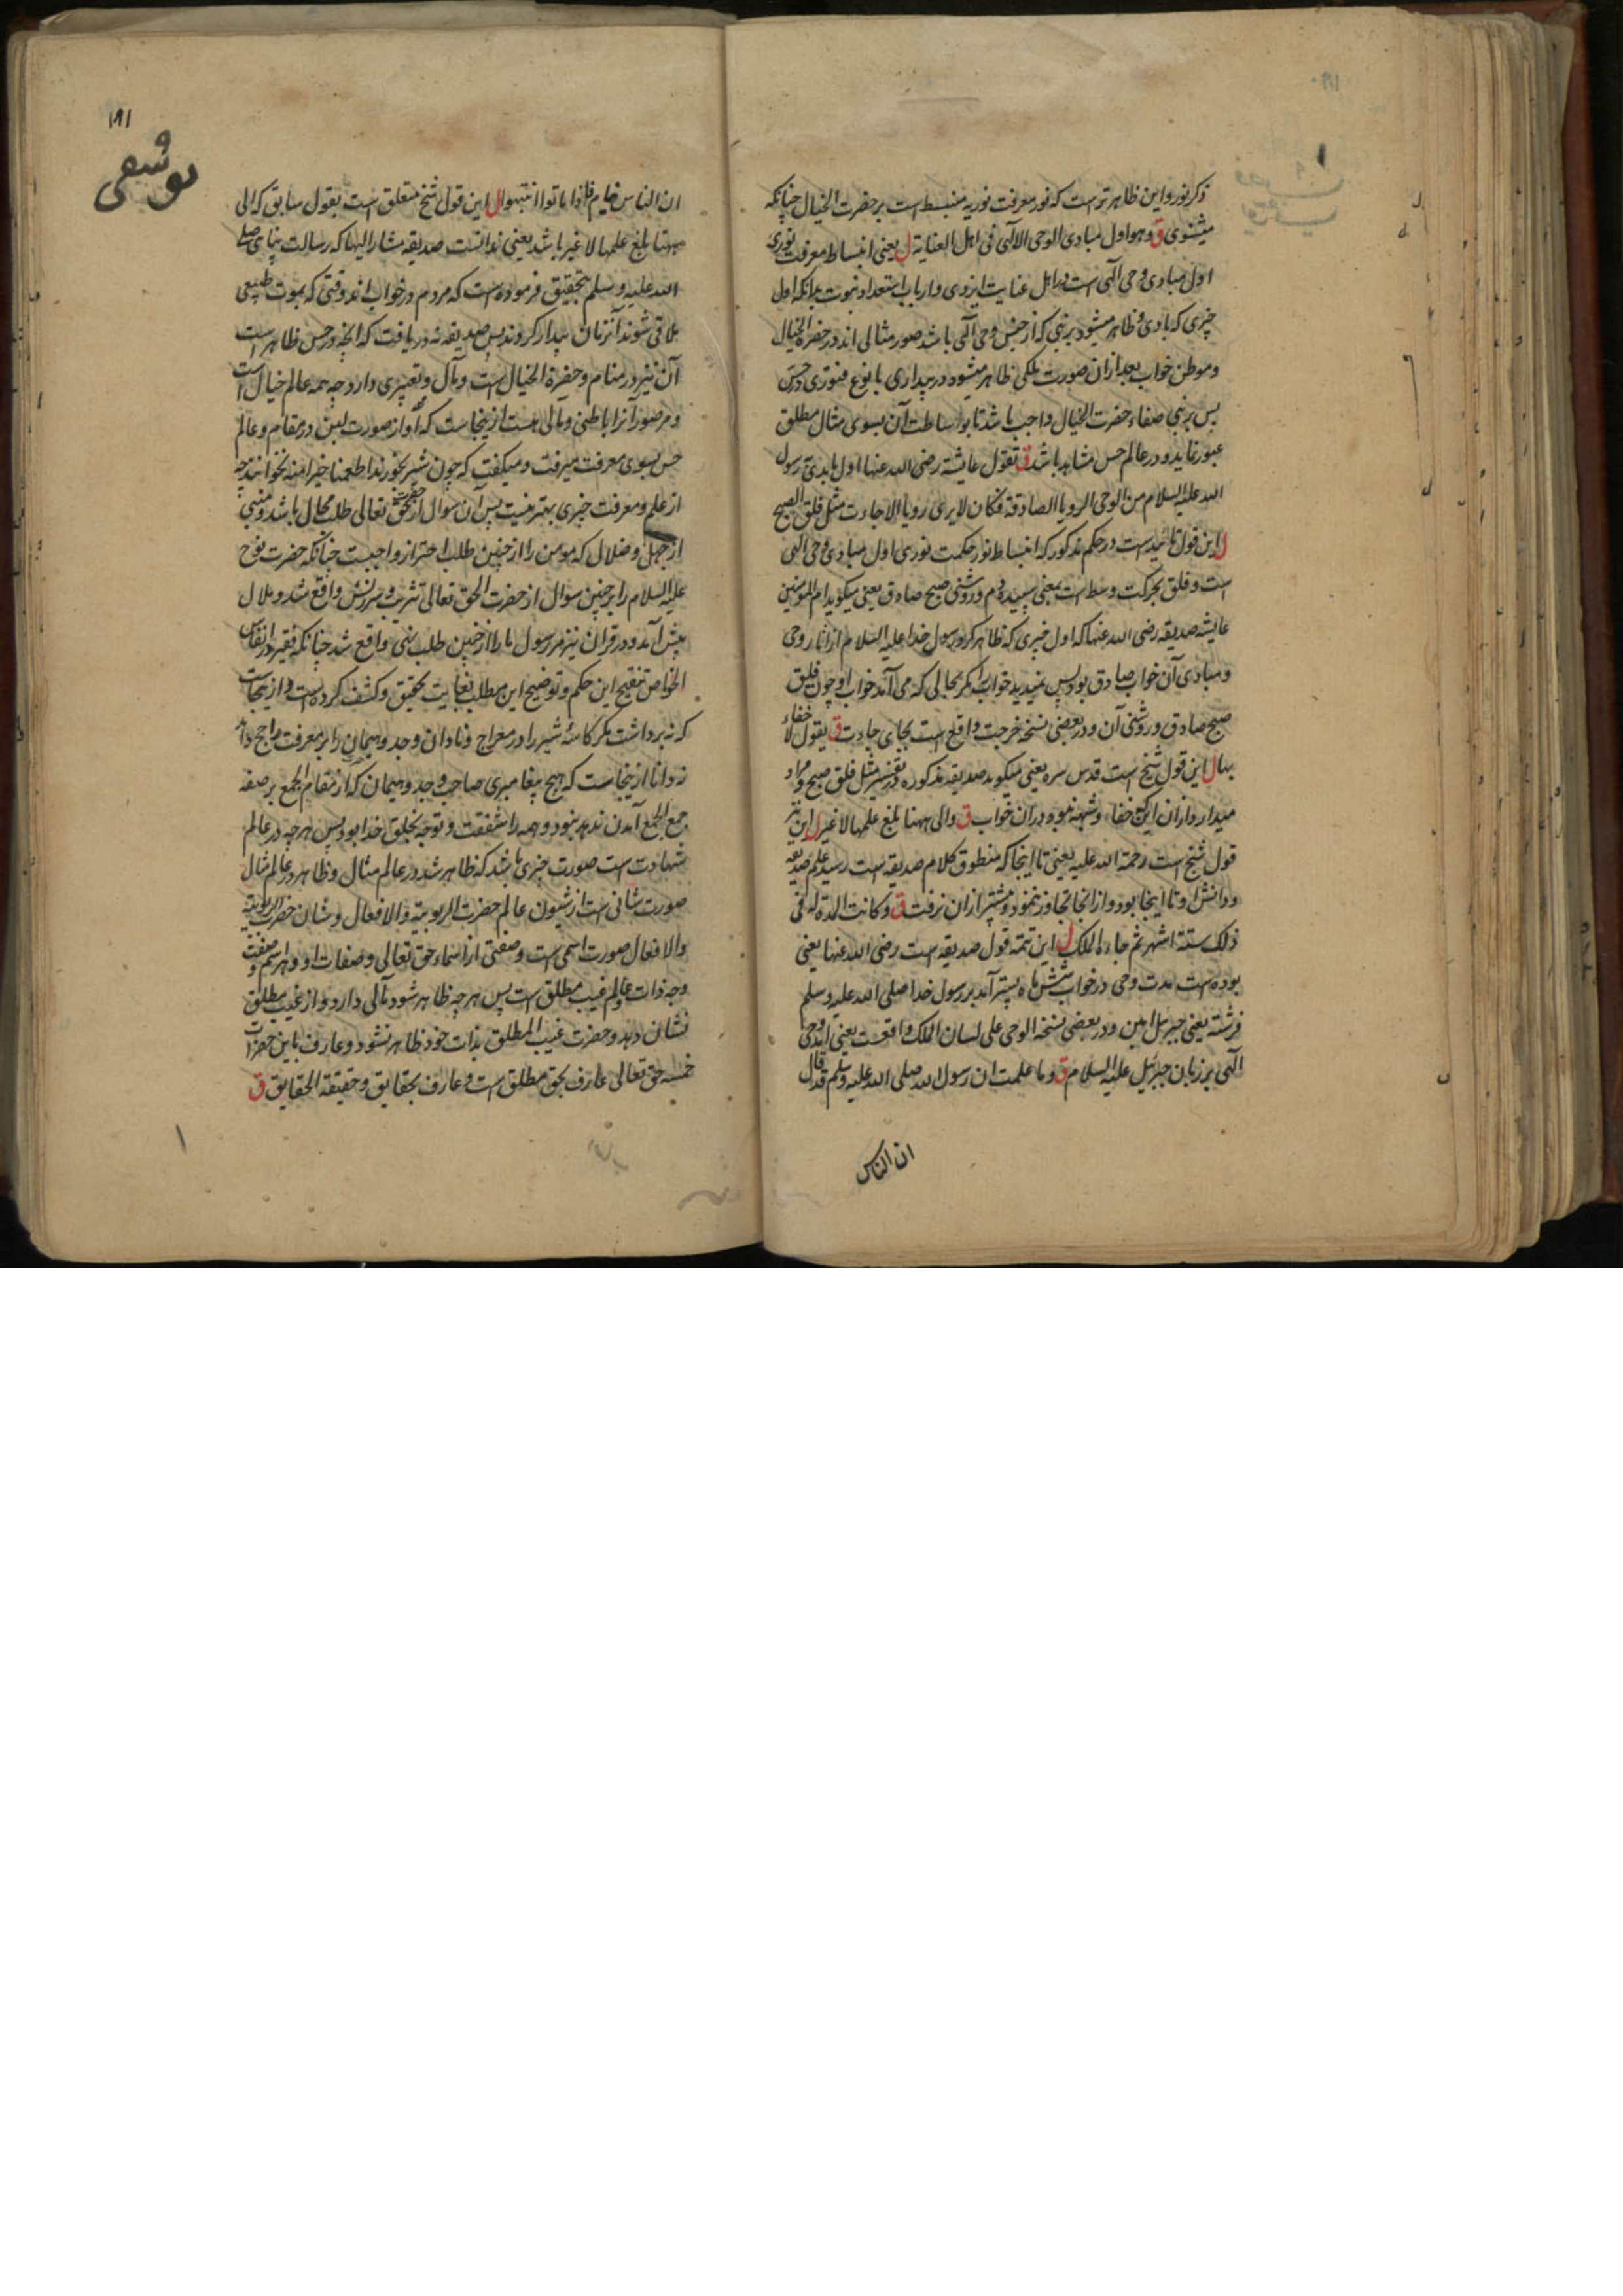 ذکر نور و این ظاهرتر است که نور معرفت نوریه منبسط است بر حضرت الخیال چنانکه
میشنوی ق وهو اول مبادی الوحی الالهی فی اهل العنایة ل یعنی انبساط معرفت نوری
اول مبادی وحی آلهی است در اهل عنایت ایزدی و ارباب استعداد نبوت بدانکه اول
چیزی که بادی و ظاهر میشود بر نبی که از جنس وحی آلهی باشد صور مثالی اند در حضرة الخیال
و موطن خواب بعد ازان صورت ملکی ظاهر میشود در بیداری با نوع فتوری در حس
پس بر نبی صفاء حضرت الخیال واجب باشد تا بوساطت آن بسوی مثال مطلق
عبور نماید و در عالم حس مشاهد باشد ق تقول عایشة رضی الله عنها اول ما بدئ رسول
الله علیه السلام من الوحی الرویا الصادقة فکان لا یری رویا الا جاءت مثل فلق الصبح
ل این قول تائید است در حکم مذکور که انبساط نور حکمت نوری اول مبادی وحی الهی
است و فلق بحرکت وسط است بمعنی سپیده دم و روشنی صبح صادق یعنی میکوید ام المومنین
عایشه صدیقه رضی الله عنها که اول چیزی که ظاهر کرد بر رسول خدا علیه السلام از اثار وحی
و مبادی آن خواب صادق بود پس نمیدید خواب را مکر بحالی که می آمد خواب او چون فلق
صبح صادق و روشنی آن و در بعضی نسخه خرجت واقع است بجای جاءت ق یقول لا خفاء
بها ل این قول شیخ است قدس سره یعنی میکوید صدیقه مذکوره در تفسیر مثل فلق صبح و مراد
میدارد ازان اینکه خفاء و شبهه نبوده دران خواب ق والی ههنا بلغ علمها لا غیر ل این نیز
قول شیخ است رحمة الله علیه یعنی تا اینجا که منطوق کلام صدیقه است رسید علم صدیقه
و دانش او تا اینجا بود و از انجا تجاوز ننمود و پیشتر ازان نرفت ق وکانت المدة له فی
ذلک ستة اشهر ثم جاءه الملک ل این تتمه قول صدیقه است رضی الله عنها یعنی
بوده است مدت وحی در خواب شش ماه پستر آمد بر رسول خدا صلی الله علیه وسلم
فرشته یعنی جبریل امین و در بعضی نسخه الوحی علی لسان الملک واقعست یعنی آمد وحی
آلهی بر زبان جبرئیل علیه السلام ق وما علمت ان رسول الله صلی الله علیه وسلم قد قال
ان الناس
۱۹۱
یوسفی
ان الناس نیام فاذا ماتوا انتبهوا ل این قول شیخ متعلق است بقول سابق که الی
ههنا بلغ علمها لا غیر باشد یعنی ندانست صدیقه مشار الیها که رسالت پناهی صلی
الله علیه وسلم بتحقیق فرموده است که مردم در خواب اند وقتی که بموت طبیعی
ملاقی شوند آنزمان بیدار کردند پس صدیقه نه دریافت که انچه در حس ظاهر است
آن نیز در منام و حضرة الخیال است و مآل و تعبیری دارد چه همه عالم خیال است
و مر صور آنرا باطنی و مآلی هست ازینجاست که او از صورت لبن در مقام و عالم
حس بسوی معرفت میرفت و میکفت که چون شیر بخورند اطعمنا خیرا منه نخوانند چه
از علم و معرفت چیزی بهتر نیست پس آن سوال از حضرت حق تعالی طلب محال باشد و مبنی
از جهل و ضلال که مومن را از چنین طلب احتراز واجبست چنانکه حضرت نوح
علیه السلام را بر چنین سوال از حضرت الحق تعالی تثریب و سرزنش واقع شد و ملال
پیش آمد و در قران نیز مر رسول ما را از چنین طلب نهی واقع شد چنانکه فقیر در انفاس
الخواص تنقیح این حکم و توضیح این مطلب بغایت تحقیق و کشف کرده است و ازینجاست
که نه برداشت مکر کاسهٔ شیر را در معراج و نادان وجد و هیمان را بر معرفت راجح داند
نه دانا ازینجاست که هیچ پیغامبری صاحب وجد و هیمان که از مقام الجمع بر صفه
جمع الجمع آمدن ندهد نبود و همه را شفقت و توجه بخلق خدا بود پس هر چه در عالم
شهادت است صورت چیزی باشد که ظاهر شد در عالم مثال و ظاهر در عالم مثال
صورت شانی است از شیون عالم حضرت الربوبیة والافعال و شان حضرت الربوبیة
والافعال صورت اسمی است و صفتی از اسماء حق تعالی و صفات او و هر اسم و صفت
وجه ذات و عالم غیب مطلق است پس هر چه ظاهر شود مآلی دارد و از غیب مطلق
نشان دهد و حضرت غیب المطلق بذات خود ظاهر نشود و عارف باین حضرات
خمسه حق تعالی عارف بحق مطلق است و عارف بحقایق و حقیقة الحقایق ق